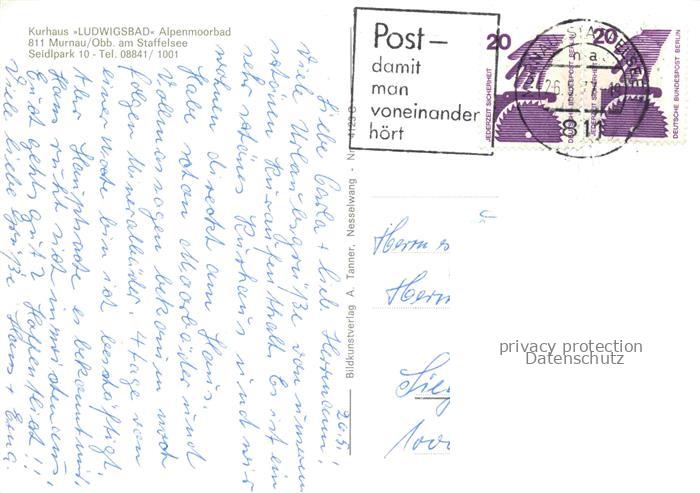 Kurhaus »LUDWIGSBAD« Alpenmoorbad
811 Murnau/Obb. am Staffelsee
Seidlpark 10 - Tel. 08841/ 1001
Post–
damit
man
voneinander
hört
20
20
JEDERZEIT SICHERHEIT
DEUTSCHE BUNDESPOST BERLIN
JEDERZEIT SICHERHEIT
DEUTSCHE BUNDESPOST BERLIN
Bildkunstverlag A. Tanner, Nesselwang - Nr. 4123 G
20.5.
Liebe Carla + lieb. Hermann!
Viele Urlaubsgrüße von unserem
schönen Kuraufenthalt. Es ist ein
sehr schönes Kurhaus und wir
wohnen direkt am Haus.
Habe schon Moorbäder und
Wannen bekommen noch
folgen Mineralbäder. 4 Tage von
einer Woche bin ich beschäftigt,
Aber Hauptsache es bekommt mir,
Hans ruht sich inzwischen aus,
Euch gehts gut? Hoffentlich!!
Viele liebe Grüße Hans +
Herrn
Herm
privacy protection
Datenschutz